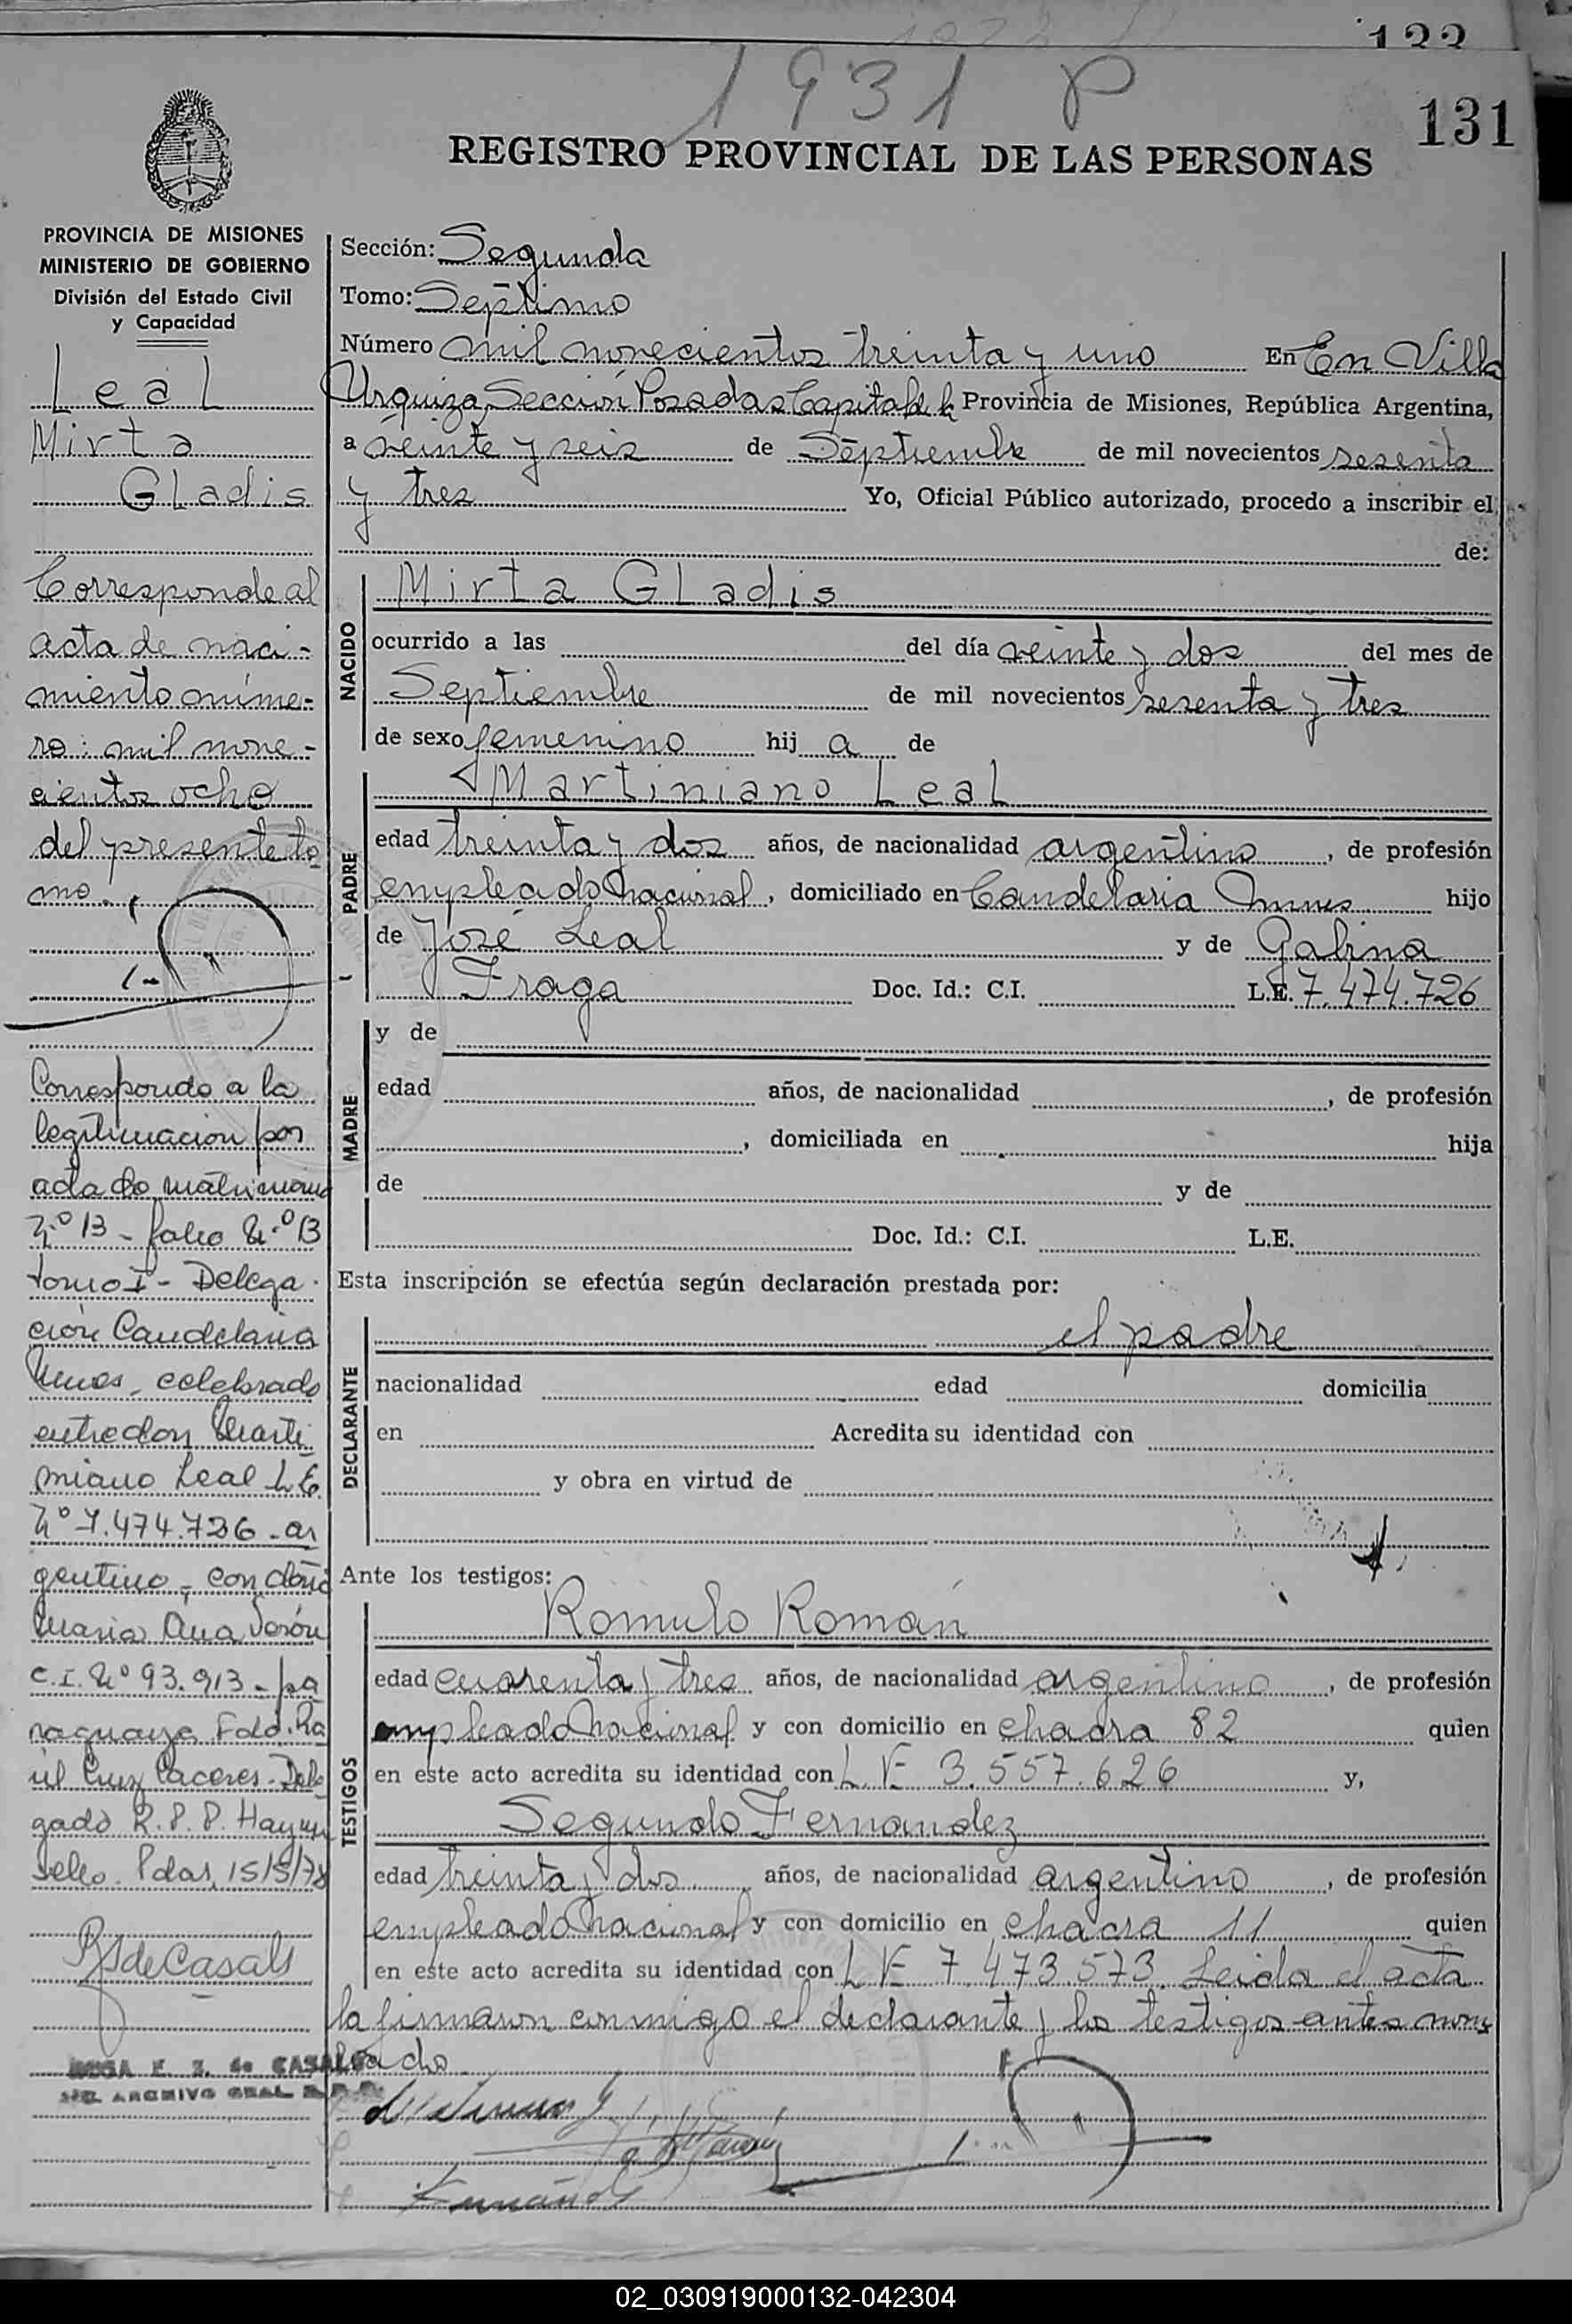 133
1931 P
131
REGISTRO PROVINCIAL DE LAS PERSONAS
PROVINCIA DE MISIONES
MINISTERIO DE GOBIERNO
División del Estado Civil
y Capacidad
Leal
Mirta
Gladis
Corresponde al
acta de naci-
miento núme-
ro: mil nove-
cientos ocho
del presente to
mo.
Corresponde a la
legitimación por
acta de matrimonio
Nº 13 - folio Nº 13
tomo I - Delega
ción Candelaria
Mnes, celebrado
entre don Marti
niano Leal L.E.
Nº 7.474.726 - ar
gentino, con doña
Maria Ana Verón
C.I. Nº 93.913 - pa
raguaya Fdo. Ra
úl Cruz Caceres - Dele
gado R.P.P. Hay un
sello. Pdas, 15/5/78
de Casals
Sección: Segunda
Tomo: Séptimo
Número mil novecientos treinta y uno En En Villa
Urquiza Sección Posadas Capital de la Provincia de Misiones, República Argentina,
a veinte y seis de Septiembre de mil novecientos sesenta
y tres Yo, Oficial Público autorizado, procedo a inscribir el
de:
NACIDO
Mirta Gladis
ocurrido a las del día veinte y dos del mes de
Septiembre de mil novecientos sesenta y tres
de sexo femenino hij a de
PADRE
Martiniano Leal
edad treinta y dos años, de nacionalidad argentino, de profesión
empleado Nacional, domiciliado en Candelaria Mnes hijo
de José Leal y de Gabina
Fraga Doc. Id.: C.I. L.E. 7.474.726
MADRE
y de
edad años, de nacionalidad , de profesión
, domiciliada en hija
de y de
Doc. Id.: C.I. L.E.
Esta inscripción se efectúa según declaración prestada por:
DECLARANTE
el padre
nacionalidad edad domicilia
en Acredita su identidad con
y obra en virtud de
Ante los testigos:
TESTIGOS
Romulo Román
edad cuarenta y tres años, de nacionalidad argentino, de profesión
empleado Nacional y con domicilio en chacra 82 quien
en este acto acredita su identidad con L.E 3.557.626 y,
Segundo Fernandez
edad treinta y dos años, de nacionalidad argentino, de profesión
empleado Nacional y con domicilio en chacra 11 quien
en este acto acredita su identidad con L E 7.473.573. Leida el acta
la firmaron conmigo el declarante y los testigos antes nom
brados
E. Z. de CASALS
ARCHIVO GRAL
02_030919000132-042304